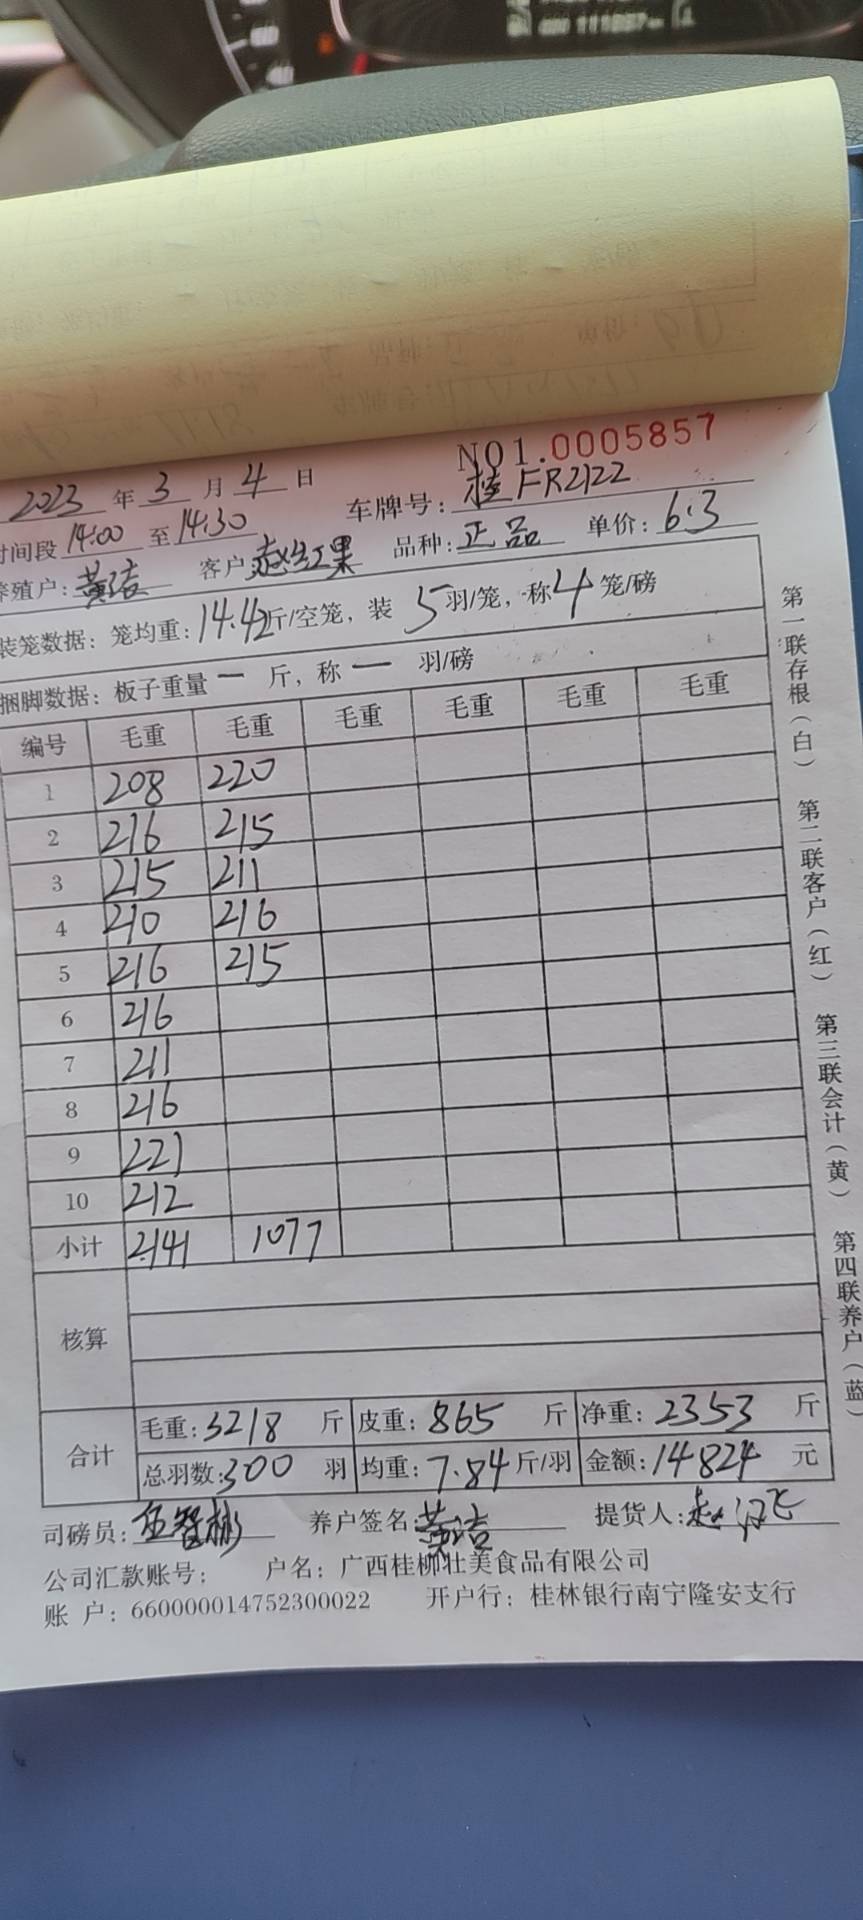 NO1.0005857
2023 年 3 月 4 日 车牌号: 桂FR2122
时间段 14:00 至 14:30
养殖户: 黄洁 客户: 赵红果 品种: 正品 单价: 6.3
装笼数据: 笼均重: 14.42斤/空笼, 装 5 羽/笼, 称 4 笼/磅
捆脚数据: 板子重量 一 斤, 称 一 羽/磅
编号 毛重 毛重 毛重 毛重 毛重 毛重
1 208 220
2 216 215
3 215 211
4 210 216
5 216 215
6 216
7 211
8 216
9 221
10 212
小计 2141 1077
核算
合计 毛重: 3218 斤 皮重: 865 斤 净重: 2353 斤
总羽数: 300 羽 均重: 7.84 斤/羽 金额: 14824 元
司磅员: 伍智彬 养户签名: 黄洁 提货人: 赵
公司汇款账号: 户名: 广西桂柳壮美食品有限公司
账 户: 660000014752300022 开户行: 桂林银行南宁隆安支行
第一联存根(白) 第二联客户(红) 第三联会计(黄) 第四联养户(蓝)